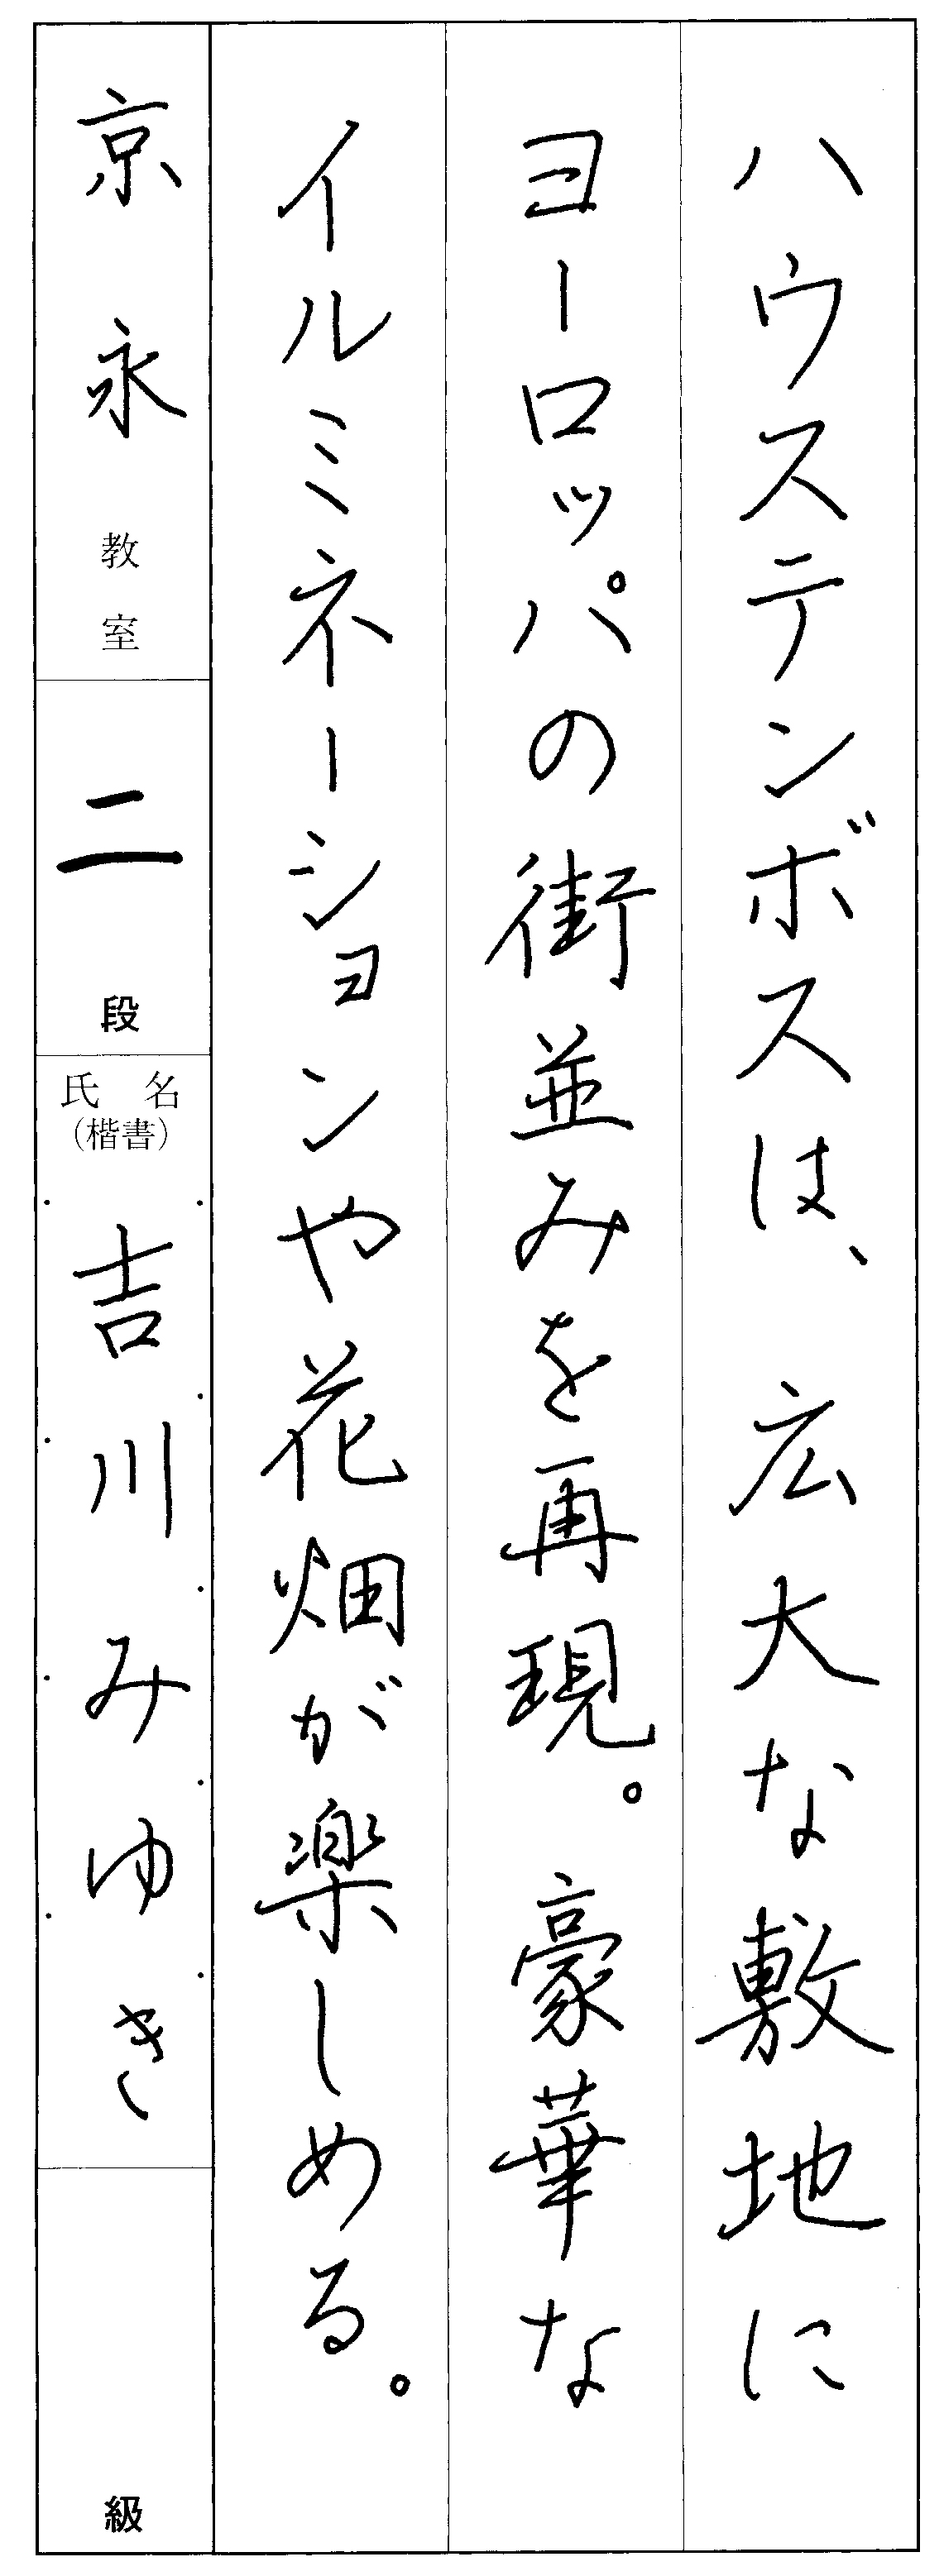 ハウステンボスは、広大な敷地に
ヨーロッパの街並みを再現。豪華な
イルミネーションや花畑が楽しめる。
京永教室
二段
氏名
(楷書)
吉川みゆき
級